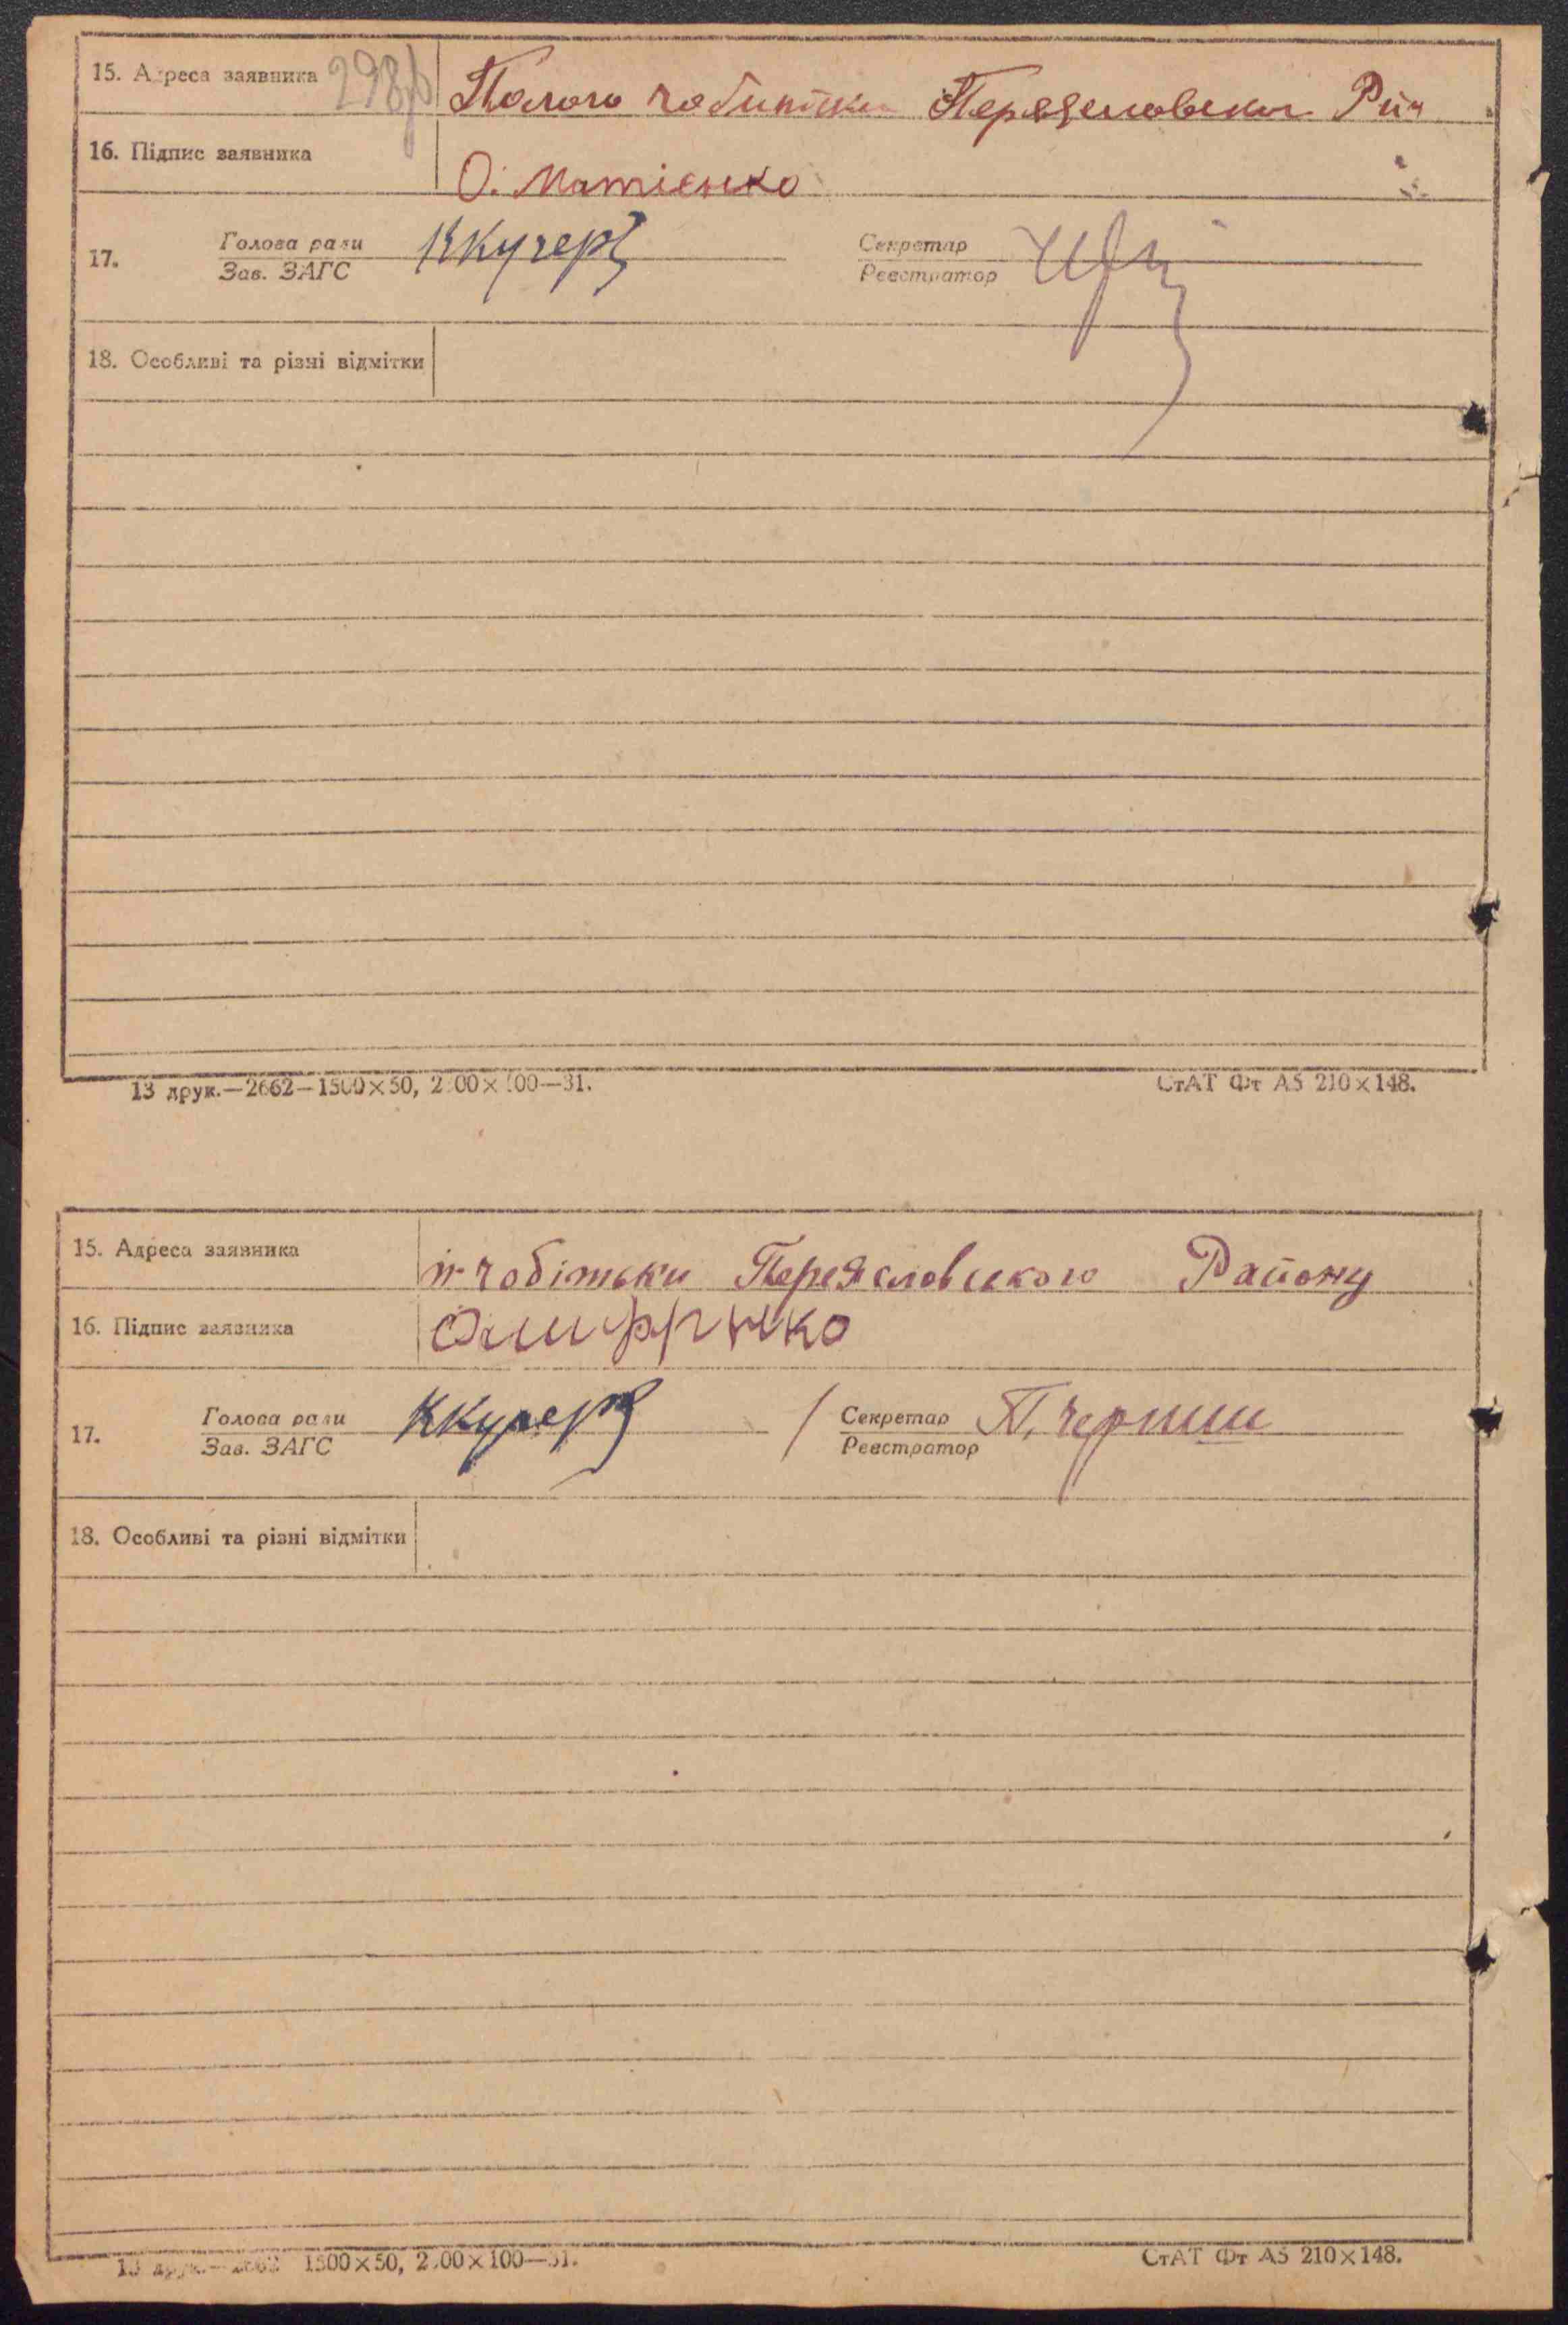 15. Адреса заявника
298
Полого Чобитьки Переяславськог Рай
16. Підпис заявника
О. Матієнко
17. Голова ради
Зав. ЗАГС
ККучер
Секретар
Реєстратор
18. Особливі та різні відмітки
13 друк.—2662—1500×50, 2 00×100—31.
СтАТ Фт А5 210×148.
15. Адреса заявника
п-чобітьки Переяславського Району
16. Підпис заявника
17. Голова ради
Зав. ЗАГС
ККучер
Секретар
Реєстратор
П. Черниш
18. Особливі та різні відмітки
13 друк.—2662 1500×50, 2.00×100—31.
СтАТ Фт А5 210×148.